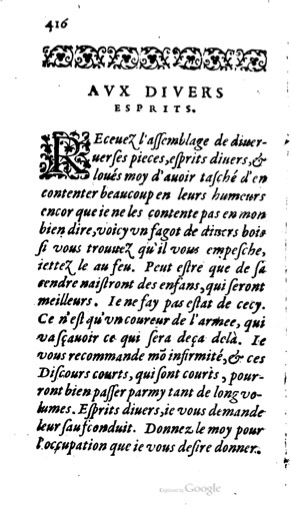 416
AVX DIVERS
ESPRITS.
REceuez l'assemblage de diuer-
uerses pieces, esprits diuers, &
loués moy d'auoir tasché d'en
contenter beaucoup en leurs humeurs
encor que ie ne les contente pas en mon
bien dire, voicy vn fagot de diuers bois
si vous trouuez qu'il vous empesche,
iettez le au feu. Peut estre que de sa
cendre naistront des enfans, qui seront
meilleurs. Ie ne fay pas estat de cecy.
Ce n'est qu'vn coureur de l'armee, qui
va sçauoir ce qui sera deça delà. Ie
vous recommande mõ infirmité, & ces
Discours courts, qui sont courts, pour-
ront bien passer parmy tant de long vo-
lumes. Esprits diuers, ie vous demande
leur saufconduit. Donnez le moy pour
l'occupation que ie vous desire donner.
Digitized by Google